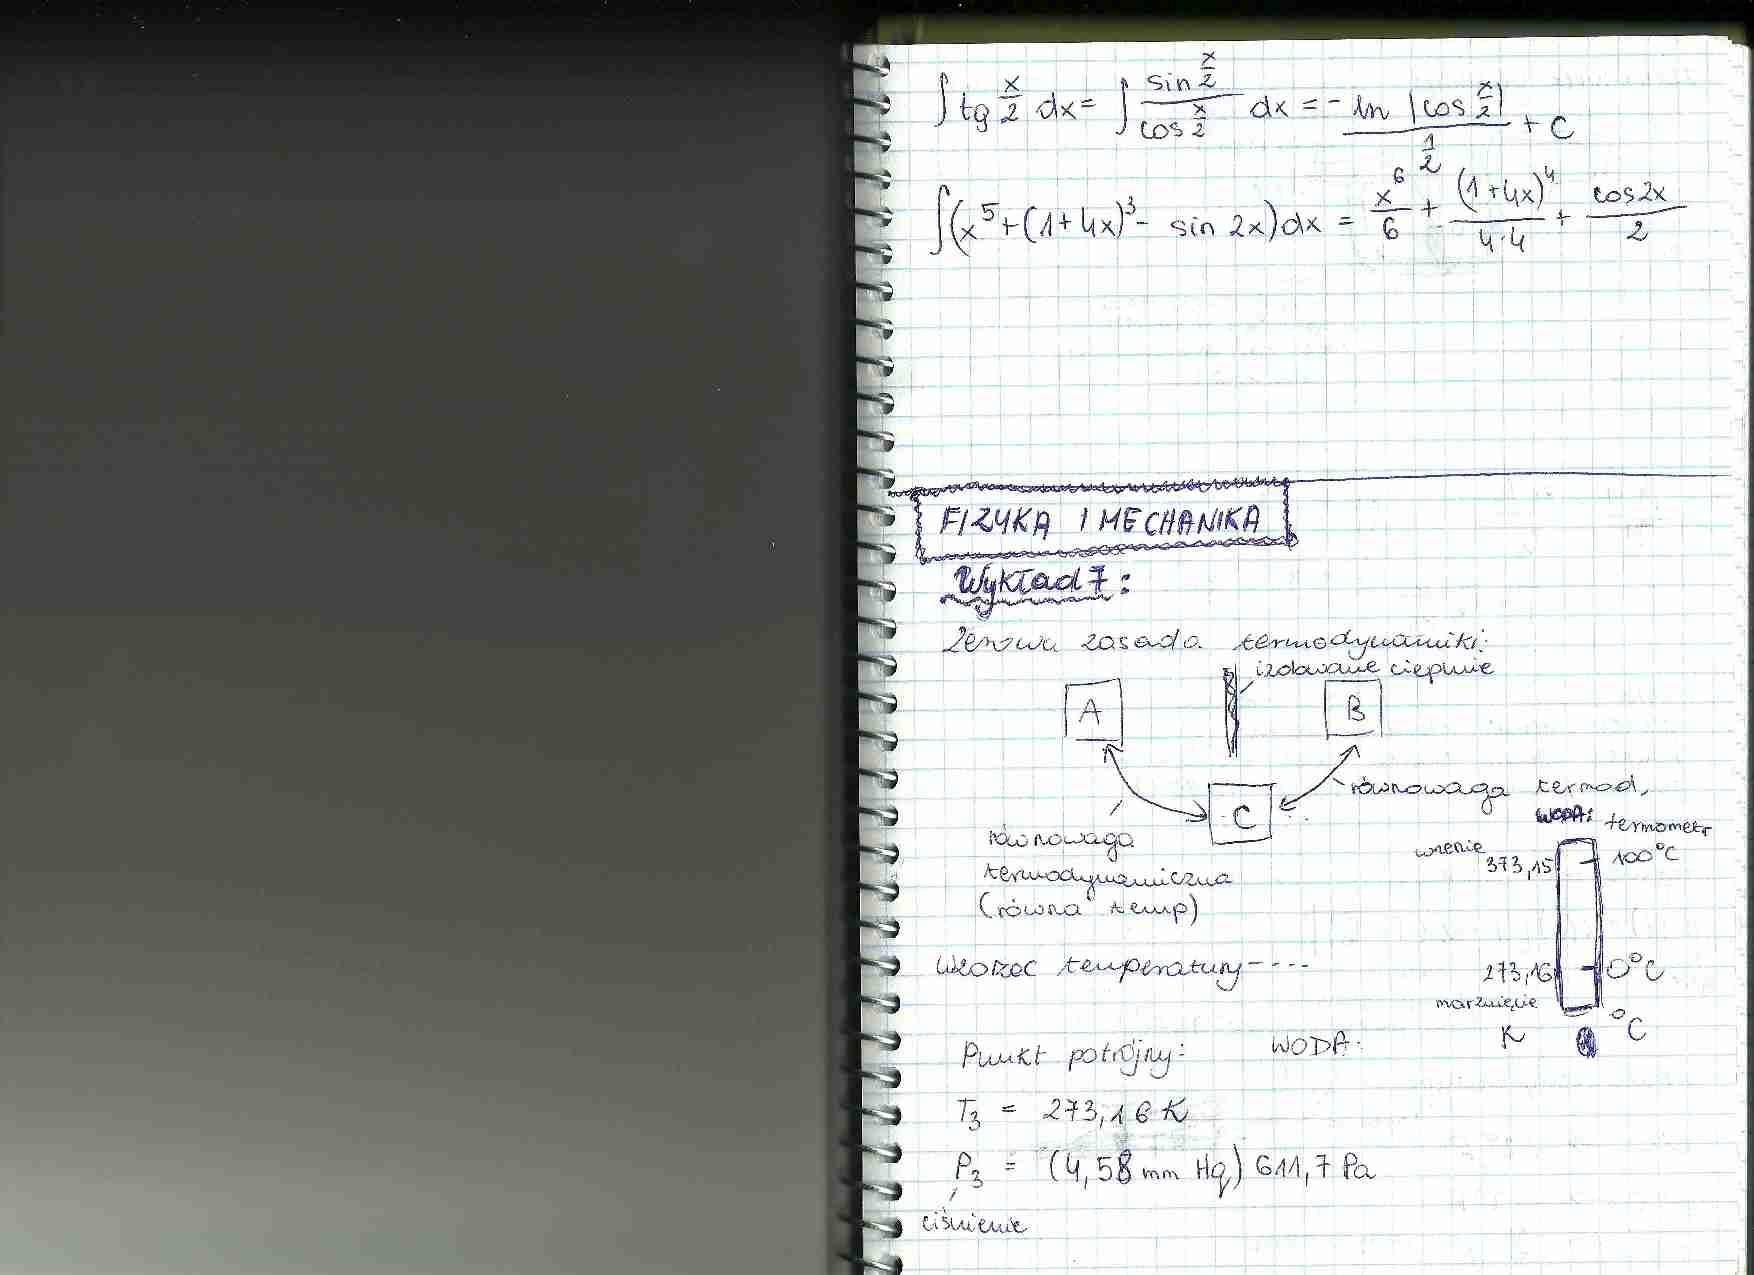 ∫ tg x/2 dx = ∫ sin x/2 / cos x/2 dx = - ln |cos x/2| / 1/2 + C
∫(x⁵ + (1+4x)³ - sin 2x)dx = x⁶/6 + (1+4x)⁴/4·4 + cos2x/2
FIZYKA I MECHANIKA
Wykład 7:
Zerowa zasada termodynamiki:
izolowane cieplnie
A
B
równowaga termod,
C
WODA: termometr
równowaga
termodynamiczna
(równa temp)
wrzenie
373,15 100°C
Wzorzec temperatury----
273,16 0°C
marznięcie
K °C
Punkt potrójny: WODA:
T₃ = 273,16 K
P₃ = (4,58 mm Hg) 611,7 Pa
ciśnienie